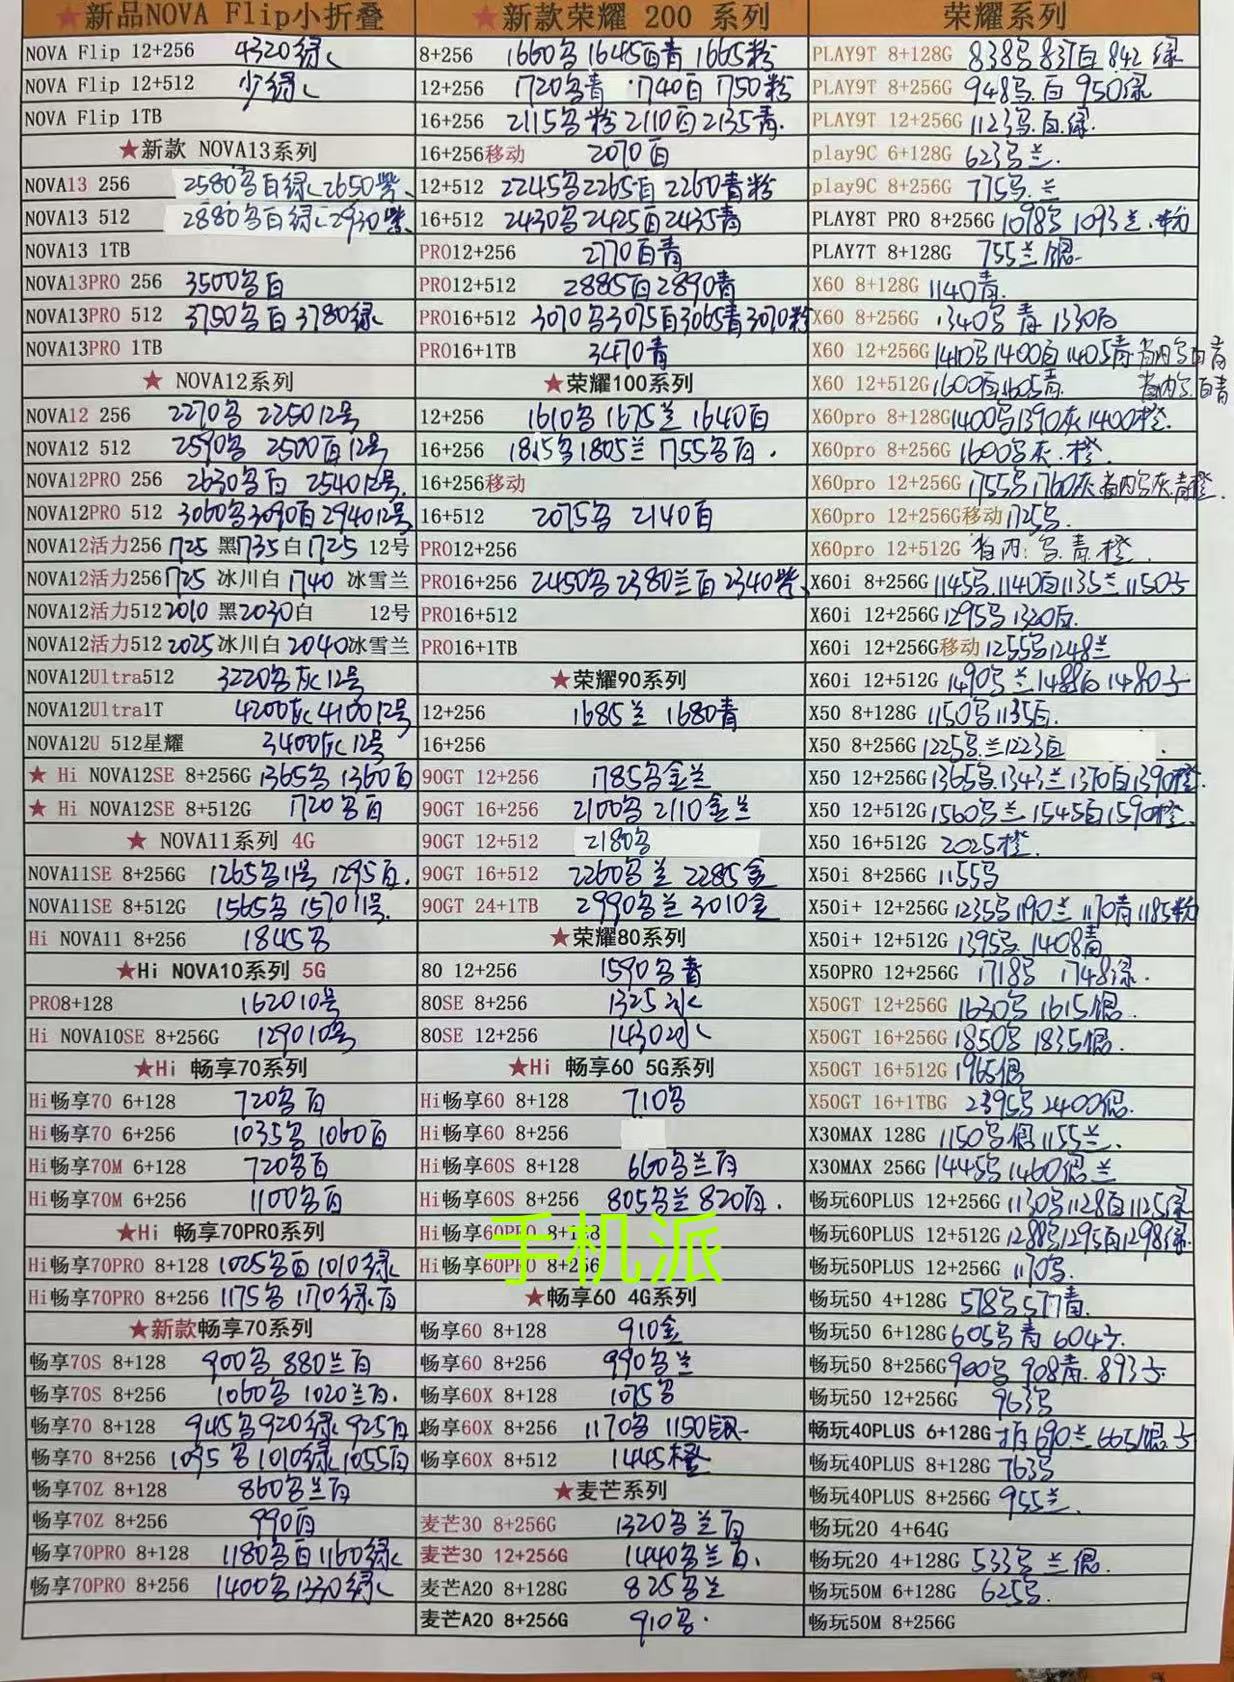 ★新品NOVA Flip小折叠
NOVA Flip 12+256 4320绿
NOVA Flip 12+512 少绿
NOVA Flip 1TB
★新款 NOVA13系列
NOVA13 256 2580 白绿 2650紫
NOVA13 512 2880 白绿 2930紫
NOVA13 1TB
NOVA13PRO 256 3500 白
NOVA13PRO 512 3750 白 3780绿
NOVA13PRO 1TB
★ NOVA12系列
NOVA12 256 2270 2250 12号
NOVA12 512 2590 2500白12号
NOVA12PRO 256 2630 白 2540 12号
NOVA12PRO 512 3060 3090白 2940 12号
NOVA12活力256 1725 黑1735白1725 12号
NOVA12活力256 1725 冰川白 1740 冰雪兰
NOVA12活力512 2010 黑2030白 12号
NOVA12活力512 2025 冰川白 2040冰雪兰
NOVA12Ultra512 3220 灰12号
NOVA12Ultra1T 4200灰 4100 12号
NOVA12U 512星耀 3400灰12号
★ Hi NOVA12SE 8+256G 1365 1360白
★ Hi NOVA12SE 8+512G 1720 白
★ NOVA11系列 4G
NOVA11SE 8+256G 1265 11号 1295白
NOVA11SE 8+512G 1565 1570 11号
Hi NOVA11 8+256 1845
★Hi NOVA10系列 5G
PRO8+128 1620 10号
Hi NOVA10SE 8+256G 1290 10号
★Hi 畅享70系列
Hi畅享70 6+128 720 白
Hi畅享70 6+256 1035 1060白
Hi畅享70M 6+128 720 白
Hi畅享70M 6+256 1100 白
★Hi 畅享70PRO系列
Hi畅享70PRO 8+128 1025 白 1010绿
Hi畅享70PRO 8+256 1175 1170绿白
★新款畅享70系列
畅享70S 8+128 900 880兰白
畅享70S 8+256 1060 1020兰白
畅享70 8+128 945 920绿 925白
畅享70 8+256 1095 1010绿 1055白
畅享70Z 8+128 860 兰白
畅享70Z 8+256 990白
畅享70PRO 8+128 1180 白 1160绿
畅享70PRO 8+256 1400 1330绿
★新款荣耀 200 系列
8+256 1660 1645白青 1665粉
12+256 1720 青 1740白 1750粉
16+256 2115 粉 2110白 2135青
16+256移动 2070白
12+512 2245 2265白 2260青粉
16+512 2430 2425白 2435青
PRO12+256 2770白青
PRO12+512 2885白 2890青
PRO16+512 3070 3075白 3065青 3070粉
PRO16+1TB 3470青
★荣耀100系列
12+256 1610 1675兰 1640白
16+256 1815 1805兰 1755 白
16+256移动
16+512 2075 2140白
PRO12+256
PRO16+256 2450 2380兰白 2340紫
PRO16+512
PRO16+1TB
★荣耀90系列
12+256 1685兰 1680青
16+256
90GT 12+256 1785 金兰
90GT 16+256 2100 2110金兰
90GT 12+512 2180
90GT 16+512 2260 兰 2285金
90GT 24+1TB 2990 兰 3010金
★荣耀80系列
80 12+256 1590 青
80SE 8+256 1325冰
80SE 12+256 1430冰
★Hi 畅享60 5G系列
Hi畅享60 8+128 710
Hi畅享60 8+256
Hi畅享60S 8+128 660 兰白
Hi畅享60S 8+256 805 兰 820白
Hi畅享60PRO 8+128
手机派
Hi畅享60PRO 8+256
★畅享60 4G系列
畅享60 8+128 910金
畅享60 8+256 990 兰
畅享60X 8+128 1075
畅享60X 8+256 1170 1150银
畅享60X 8+512 1445橙
★麦芒系列
麦芒30 8+256G 1320 兰白
麦芒30 12+256G 1440 兰白
麦芒A20 8+128G 825 兰
麦芒A20 8+256G 910
荣耀系列
PLAY9T 8+128G 838 837白 842绿
PLAY9T 8+256G 948 白 950绿
PLAY9T 12+256G 1123 白 绿
play9C 6+128G 623 兰
play9C 8+256G 775 兰
PLAY8T PRO 8+256G 1098 1093兰 粉
PLAY7T 8+128G 755兰银
X60 8+128G 1140青
X60 8+256G 1340 青 1330白
X60 12+256G 1410 1400白 1405青 省内 白青
X60 12+512G 1600白 1605青 省内 白青
X60pro 8+128G 1400 1390灰 1400橙
X60pro 8+256G 1600 灰 橙
X60pro 12+256G 1755 1760灰 省内 灰青橙
X60pro 12+256G移动 1725
X60pro 12+512G 省内 青 橙
X60i 8+256G 1145 1140白 1135兰 1150
X60i 12+256G 1295 1320白
X60i 12+256G移动 1255 1248兰
X60i 12+512G 1490 兰 1488白 1480
X50 8+128G 1150 1135白
X50 8+256G 1225 兰 1223白
X50 12+256G 1365 1343兰 1370白 1390橙
X50 12+512G 1560 兰 1545白 1590橙
X50 16+512G 2025橙
X50i 8+256G 1155
X50i+ 12+256G 1235 1190兰 1170青 1185粉
X50i+ 12+512G 1395 1408青
X50PRO 12+256G 1718 1748绿
X50GT 12+256G 1630 1615银
X50GT 16+256G 1850 1835银
X50GT 16+512G 1965银
X50GT 16+1TBG 2395 2400银
X30MAX 128G 1150 银 1155兰
X30MAX 256G 1445 1460银兰
畅玩60PLUS 12+256G 1130 1128白 1125绿
畅玩60PLUS 12+512G 1288 1295白 1298绿
畅玩50PLUS 12+256G 1170
畅玩50 4+128G 578 577青
畅玩50 6+128G 605 青 604
畅玩50 8+256G 900 908青 893
畅玩50 12+256G 963
畅玩40PLUS 6+128G 690兰 665银
畅玩40PLUS 8+128G 763
畅玩40PLUS 8+256G 955兰
畅玩20 4+64G
畅玩20 4+128G 533 兰 银
畅玩50M 6+128G 625
畅玩50M 8+256G